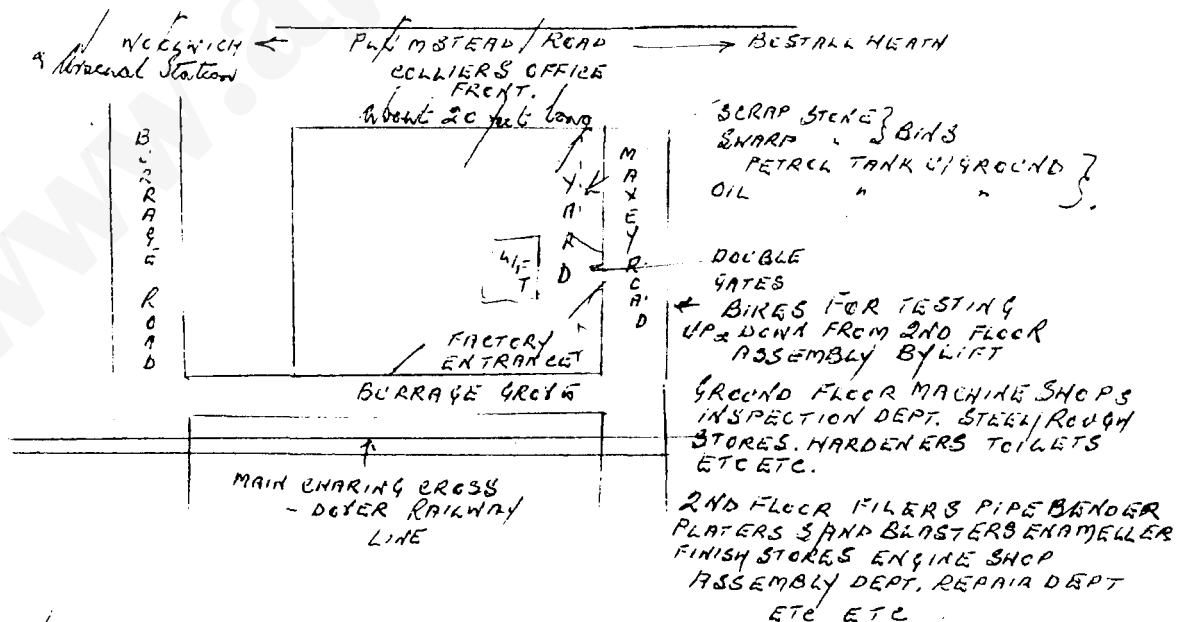 WOOLWICH ← PLUMSTEAD ROAD → BOSTALL HEATH
& Arsenal Station
COLLIERS OFFICE
FRONT.
About 20 feet long
BURRAGE ROAD
YARD
MAXEY ROAD
SCRAP STORE } BINS
SWARF " }
PETROL TANK U/GROUND }
OIL " " }.
LIFT
DOUBLE
GATES
BIKES FOR TESTING
UP & DOWN FROM 2ND FLOOR
ASSEMBLY BY LIFT
FACTORY
ENTRANCE
BURRAGE GROVE
GROUND FLOOR MACHINE SHOPS
INSPECTION DEPT. STEEL/ROUGH
STORES. HARDENERS TOILETS
ETC ETC.
MAIN CHARING CROSS
- DOVER RAILWAY
LINE
2ND FLOOR FILERS PIPE BENDER
PLATERS SAND BLASTERS ENAMELLER
FINISH STORES ENGINE SHOP
ASSEMBLY DEPT. REPAIR DEPT
ETC ETC
www.a